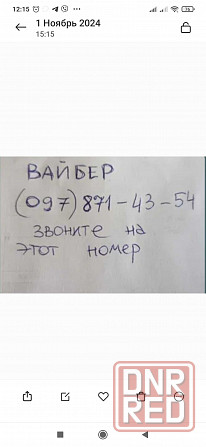 12:15
74
1 Ноябрь 2024
15:15
ВАЙБЕР
(097)871-43-54
звоните на
этот номер
DNR
RED